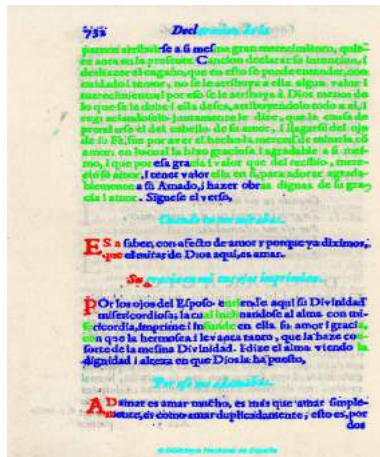 752 Declaracion de la
parece atribuirse a si mesma gran merecimiento, quie-
re aora en la presente Cancion declarar su intencion, i
deshazer el engaño, que en esto se puede entender, con
cuidado i temor, no se le atribuya a ella algun valor i
merecimiento; i por esso se le atribuya a Dios menos de
lo que se le debe i ella desea, atribuyendolo todo a el, i
regraciandoselo juntamente le dize, que la causa de
prendarse el del cabello de su amor, i llagarse del ojo
de su Fe, fue por aver el hechola merced de mirarla con
amor, en lo cual la hizo graciosa i agradable a si mes-
mo, i que por essa gracia i valor que del recibio, mere-
cio su amor, i tener valor ella en si, para adorar agrada-
blemente a su Amado, i hazer obras dignas de su gra-
cia i amor. Siguese el verso,
Cuando tu me mirabas.
ES a saber, con afecto de amor y porque ya diximos,
que el mirar de Dios aqui, es amar.
Su gracia en mi tus ojos imprimian.
POr los ojos del Esposo entiende aqui su Divinidad
misericordiosa; la cual inclinandose al alma con mi-
sericordia, imprime i infunde en ella su amor i gracia,
con que la hermosea i levanta tanto, que la haze con-
sorte de la mesma Divinidad. I dize el alma viendo la
dignidad i alteza en que Dios la ha puesto,
Por esso me adamabas.
ADamar es amar mucho, es mas que amar simple-
mente, es como amar duplicadamente, esto es, por
dos
© Biblioteca Nacional de España